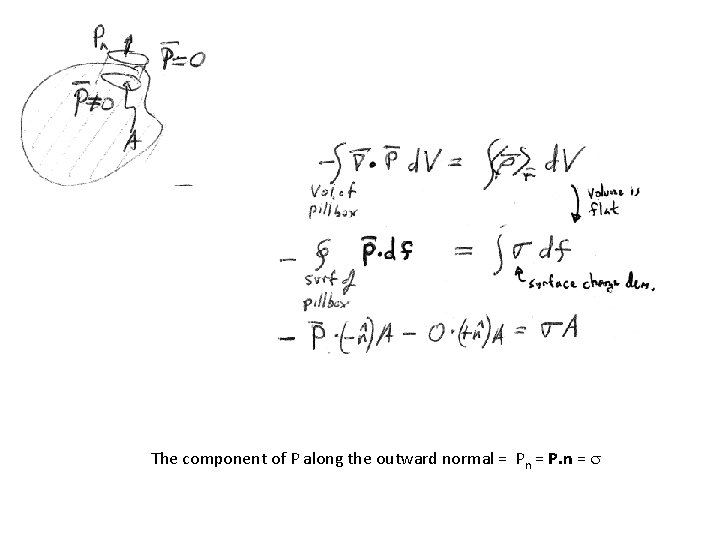 Pₙ
P̄=0
P̄≠0
A
-∫ ∇̄·P̄ dV = ∫⟨ρ⟩r̄ dV
Vol. of
pillbox
volume is
flat
- ∮ P̄·df = ∫ σ df
surf of
pillbox
surface charge dens.
- P̄·(-n̂)A - 0·(+n̂)A = σA
The component of P along the outward normal = Pₙ = P.n = σ